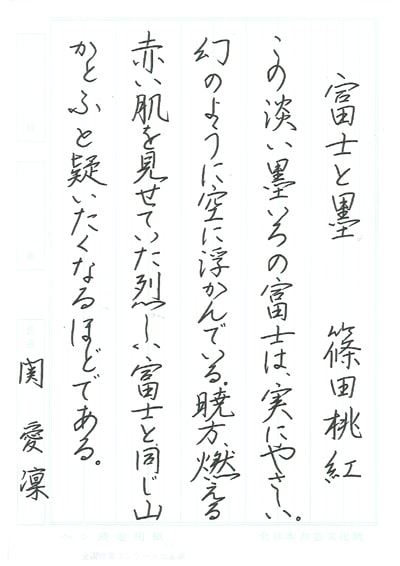 富士と墨　篠田桃紅
この淡い墨いろの富士は、実にやさしい。
幻のように空に浮かんでいる。暁方、燃える
赤い肌を見せていた烈しい富士と同じ山
かとふと疑いたくなるほどである。
関愛凜